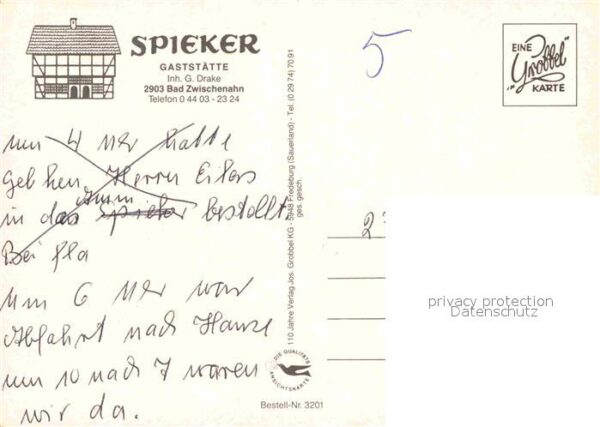 SPIEKER
GASTSTÄTTE
Inh. G. Drake
2903 Bad Zwischenahn
Telefon 0 44 03 - 23 24
5
EINE
"Grobbel"
KARTE
um 4 Uhr hatte
Geb hen Herrn Eilers
in das Spieker bestellt
Bei
Um 6 Uhr war
Abfahrt nach Hause
um 10 nach 7 waren
wir da.
110 Jahre Verlag Jos. Grobbel KG - 5948 Fredeburg (Sauerland) - Tel. (0 29 74) 70 91
ges. gesch.
2
privacy protection
Datenschutz
DIE QUALITÄTS
ANSICHTSKARTE
Bestell-Nr. 3201